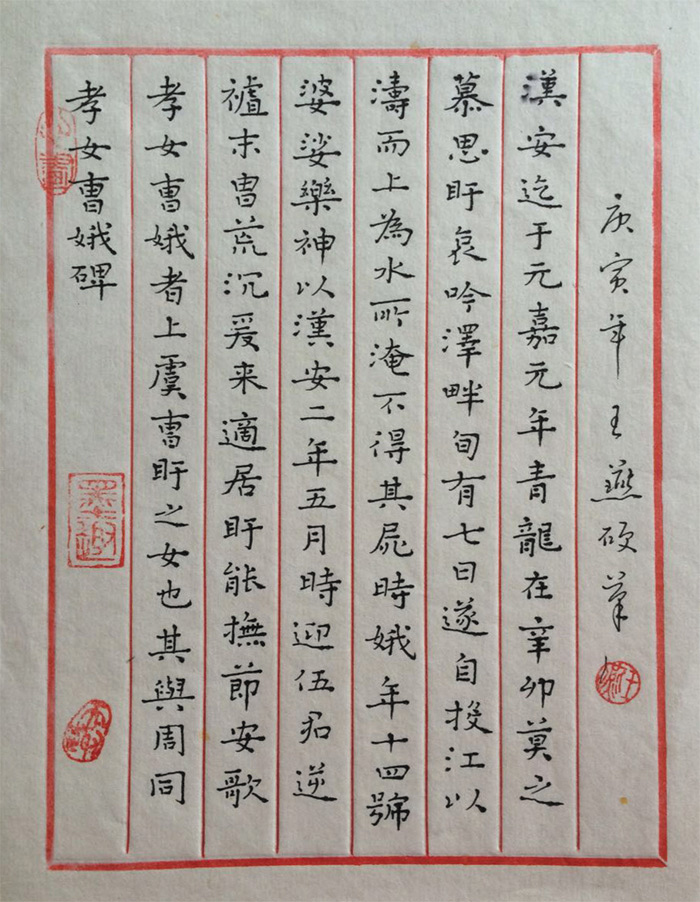 孝女曹娥碑
孝女曹娥者上虞曹盱之女也其與周同
末胄荒沉爰来適居盱能撫節安歌
婆娑樂神以漢安二年五月時迎伍君逆
濤而上為水所淹不得其屍時娥年十四號
慕思盱哀吟澤畔旬有七日遂自投江以
漢安迄于元嘉元年青龍在辛卯莫之
庚寅年王燕硕筆
墨趣